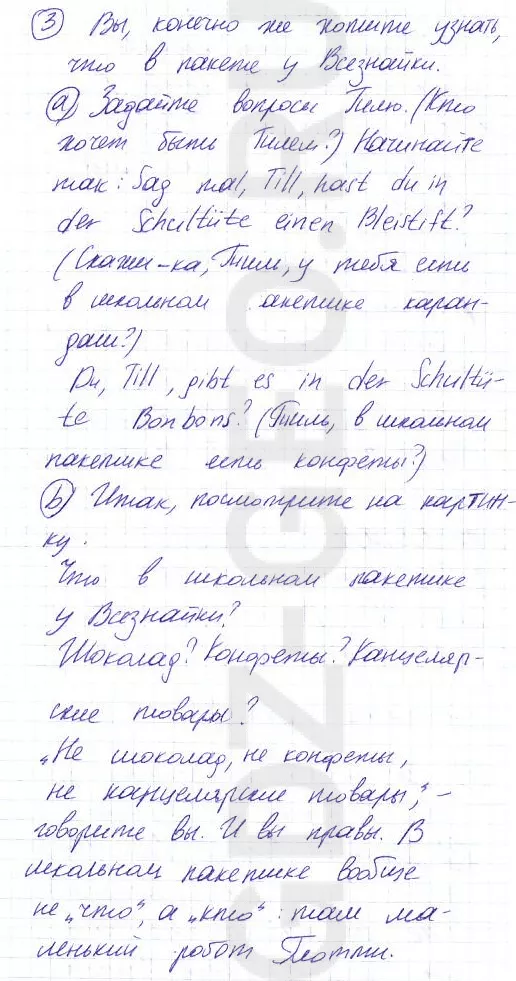 ③ Вы, конечно же хотите узнать,
что в пакете у Всезнайки.
ⓐ Задайте вопросы Тилю. (Кто
хочет быть Тилем?) Начинайте
так: Sag mal, Till, hast du in
der Schultüte einen Bleistift?
(Скажи-ка, Тиль, у тебя есть
в школьном акетике каран-
даш?)
Du, Till, gibt es in der Schultü-
te Bonbons? (Тиль, в школьном
пакетике есть конфеты?)
ⓑ Итак, посмотрите на картин-
ку.
Что в школьном пакетике
у Всезнайки?
Шоколад? Конфеты? Канцеляр-
ские товары?
„Не шоколад, не конфеты,
не канцелярские товары," –
говорите вы. И вы правы. В
школьном пакетике вообще
не „что", а „кто": там ма-
ленький робот Плотти.
GDZ-GEO.RU